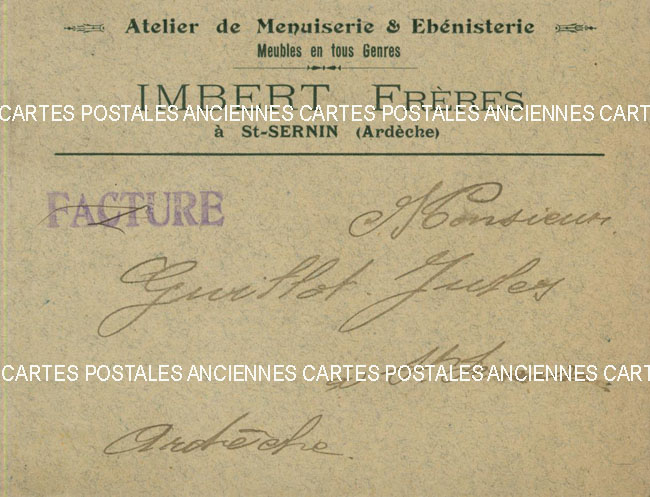 Atelier de Menuiserie & Ebénisterie
Meubles en tous Genres
IMBERT FRÈRES
CARTES POSTALES ANCIENNES CARTES POSTALES ANCIENNES CART
à St-SERNIN (Ardèche)
FACTURE
Monsieur
Guillot Jules
CARTES POSTALES ANCIENNES CARTES POSTALES ANCIENNES CART
à
Ardèche